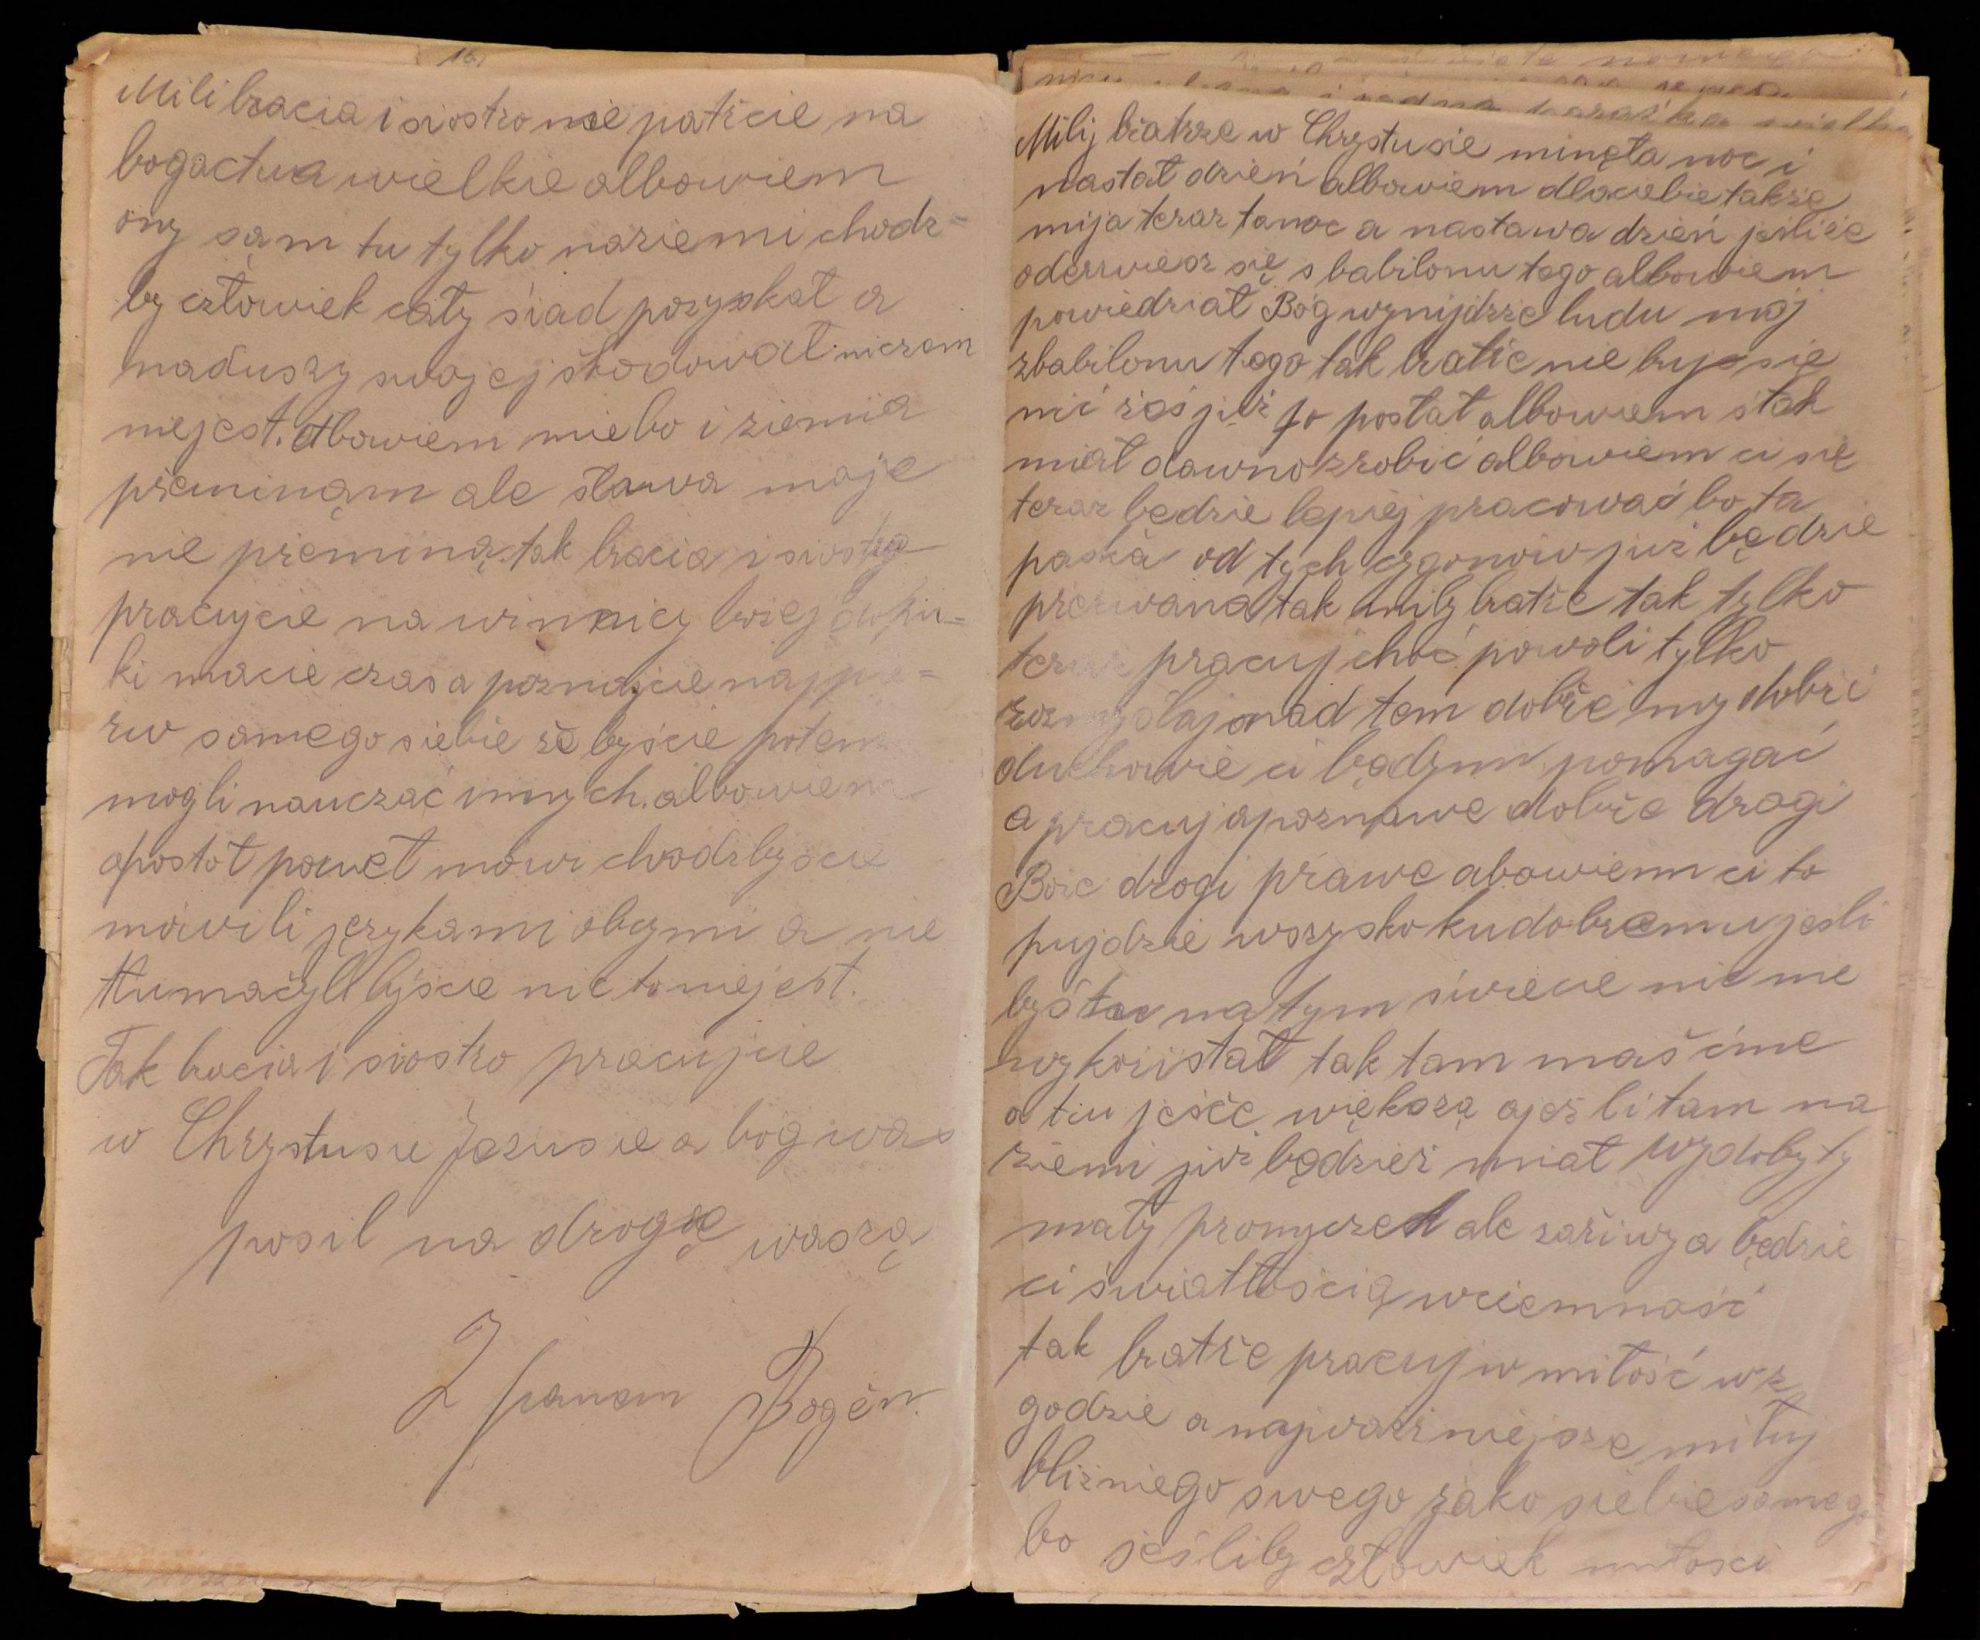 16.
Mili bracia i siostro nie patřcie na
bogactwa wielkie albowiem
ony sąm tu tylko naziemi chodz=
by człowiek cały śiad pozyskat a
naduszy swojej škodowat niczem
niejest. Albowiem niebo i ziemia
přeminąm ale stowa moje
nie přeminą. tak bracia i siostro
pracujcie na winnicy bożej dopu=
ki macie czas a poznajcie najpie=
rw samego siebie žebyście potem
mogli nauczać innych. albowiem
apostoł paweł mowi chodzbyscie
mówili językami obcymi a nie
tłumačylibyście nic to niejest.
Tak bracia i siostro pracujcie
w Chrystusie Jezusie a bóg was
posil na drogę waszą
Z panem Bogem.
Milij bratrze w Chrystusie mineła noc i
nastat dzień albowiem dlaciebie takže
mija teraz tanoc a nastawa dzień jesliże
oderwiesz się s babilonu tego albowiem
powiedziat Bóg wynijdzże ludu moj
zbabilonu tego tak bratře nie buj się
nić żeś již jo postat albowiem s tak
miał dawno zrobić albowiem ci się
teraz będzie lepiej pracować bo ta
paska od tych czgonów już będzie
přerwana tak miły bratře tak tylko
teraz pracuj choć powoli tylko
rozmyślaj nad tem dobře my dobři
duchowie ci będzym pomagać
a pracuj apoznawe dobře drogi
Boże drogi prawe abowiem ci to
pujdzie wszysko kudobremu jesli
byś tu na tym świecie nic nie
wykoristat tak tam maš ćme
a tu ješče większą ajeżli tam na
ziemi již będzieš miał wydobyty
mały promyczek ale zařiwy a będzie
ci światłością wciemność
tak bratře pracuj w miłość w z
godzie a najważniejsze miłuj
bliźniego swego jako siebie samego
bo jeśliby człowiek miłości